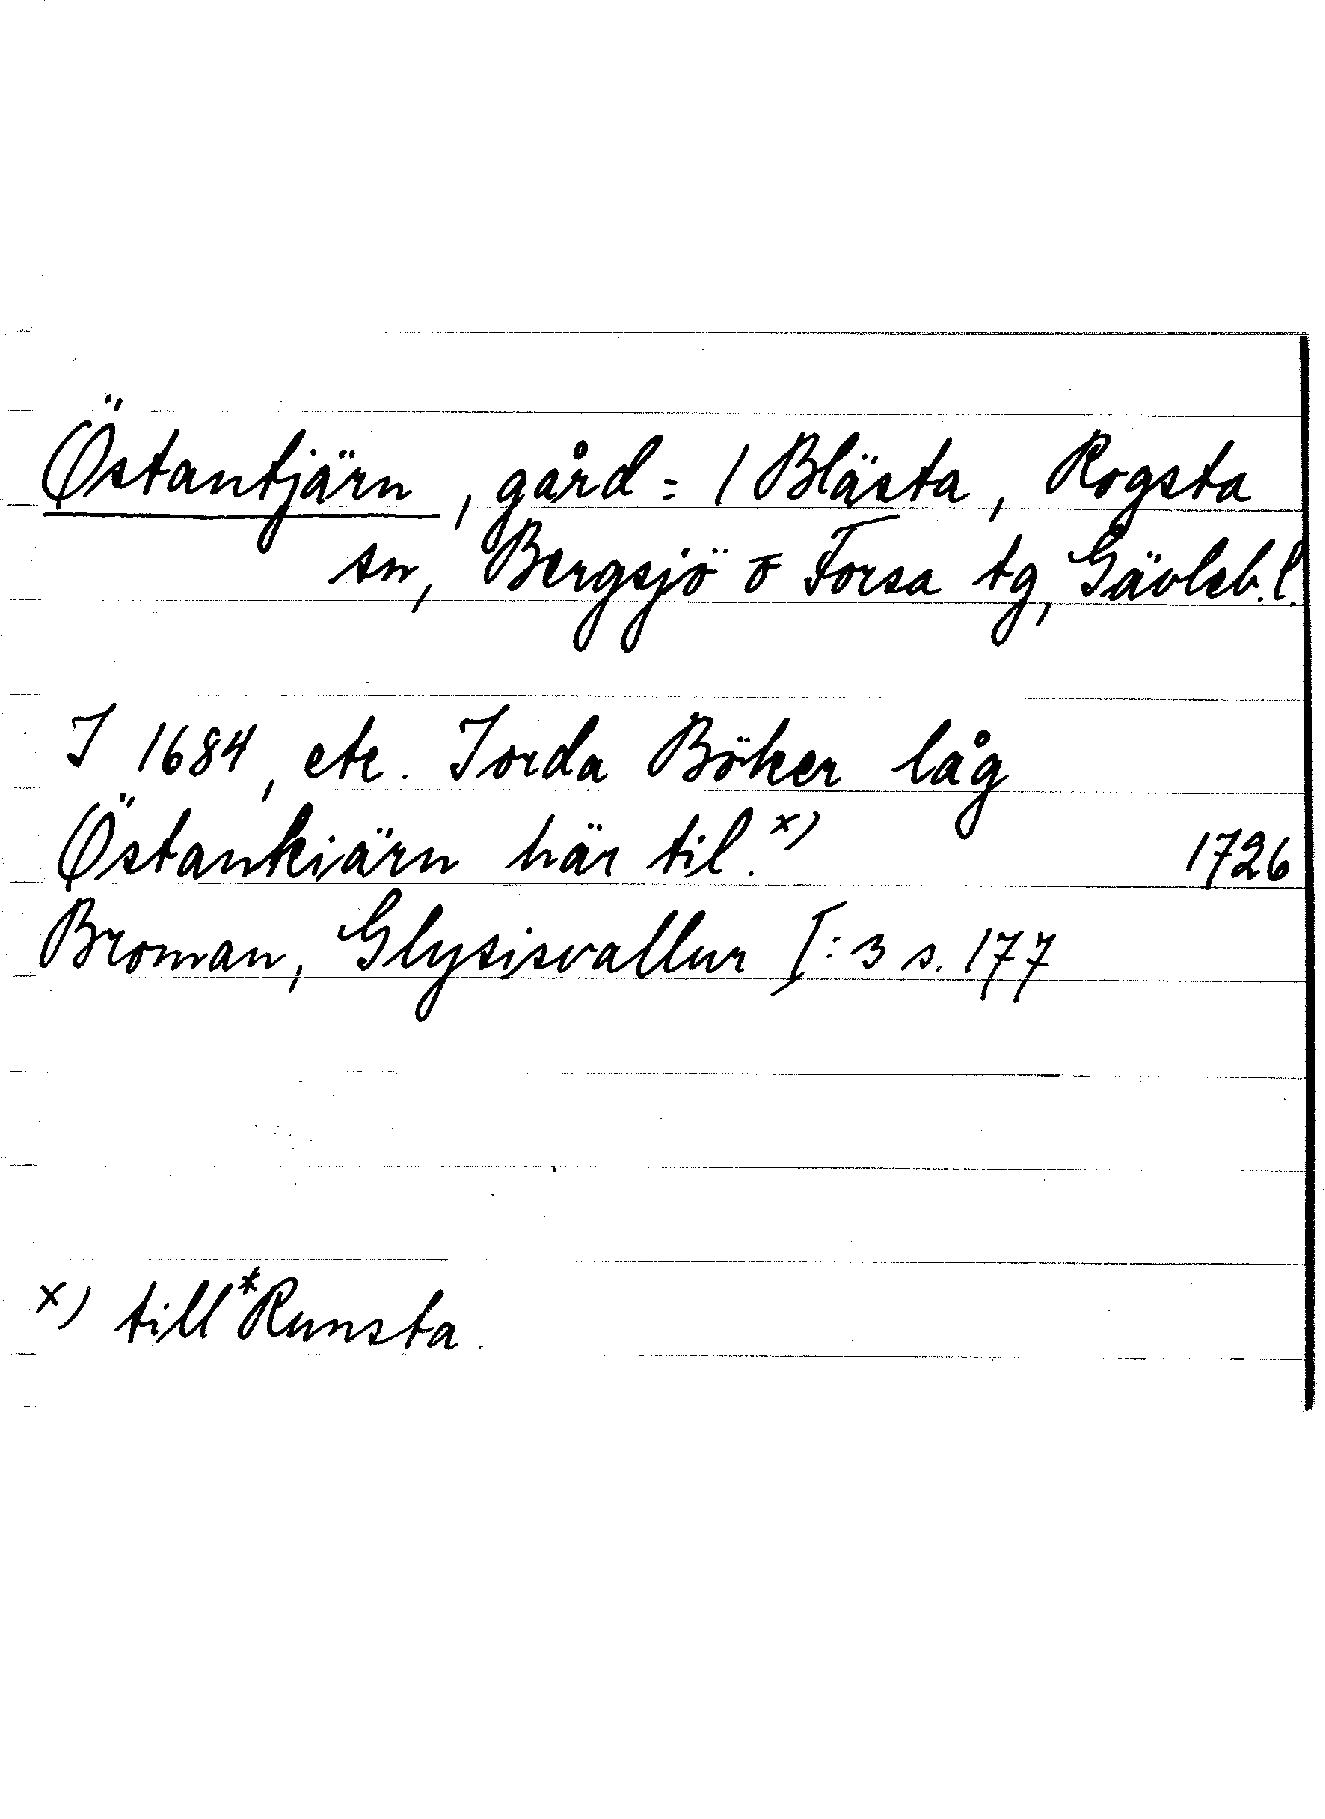 Östantjärn, gård = 1 Blästa, Rogsta
sn, Bergsjö o Forsa tg, Gävleb.l.
I 1684, etc. Jorda Böker låg
Östankiärn här til.x) 1726
Broman, Glysisvallur I:3 s. 177
x) till *Runsta.